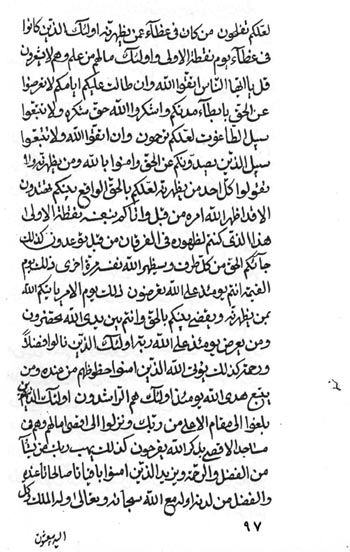 لعلكم تفلحون من كان في غطاء عمن يظهر ربه اولئك الذين كانوا
في غطاء يوم نقطة الاولى واولئك مالهم من علم وهم لا يشعرون
قل يا ايها الناس اتقوا الله وان طالت عليكم ايامكم لا تعرضوا
عن الحق بابطاء مدتكم واشكروا الله حق شكره ولا تتبعوا
سبل الطاغوت لعلكم ترحمون وان اتقوا الله ولا تتبعوا
سبيل الذين يصدونكم عن الحق وامنوا بالله ومن يظهر ربه
تقولوا كل احد من يظهر ربه لعلكم بالحق الواقع بينكم
الا قد اظهر الله امره من قبل نقطة الاولى
هذا الذي كنتم لظهوره في الفرقان من قبل توعدون كذلك
جائكم الحق من كل طرف وسيظهر الله نفسه مرة اخرى ذلك يوم
القيمة انتم يومئذ على الله تعرضون ذلك يوم الامر ياتيكم الله
بمن يظهر ربه ويقضي بينكم بالحق وانتم بين يدى الله تحضرون
ومن يعرض يومئذ على الله ربه اولئك الذين نالوا فضلا
ورحمة كذلك يوفى الله الذين امنوا حظوظهم من عنده ومن
يتبع هدى الله يومئذ اولئك هم الراشدون اولئك الذين
بلغوا الى مقام الاعلى من ربك ونزلوا الى افقوا مالهم وهم في
مساجد الاقصى بذكر الله يفرحون كذلك يهب ربك من يشآ
من الفضل والرحمة ويزيد الذين امنوا باقيات صالحات عنده
والفضل من لدنه اوله مع الله سبحانه وتعالى وله الملك وكل
٩٧
اليه يرجعون